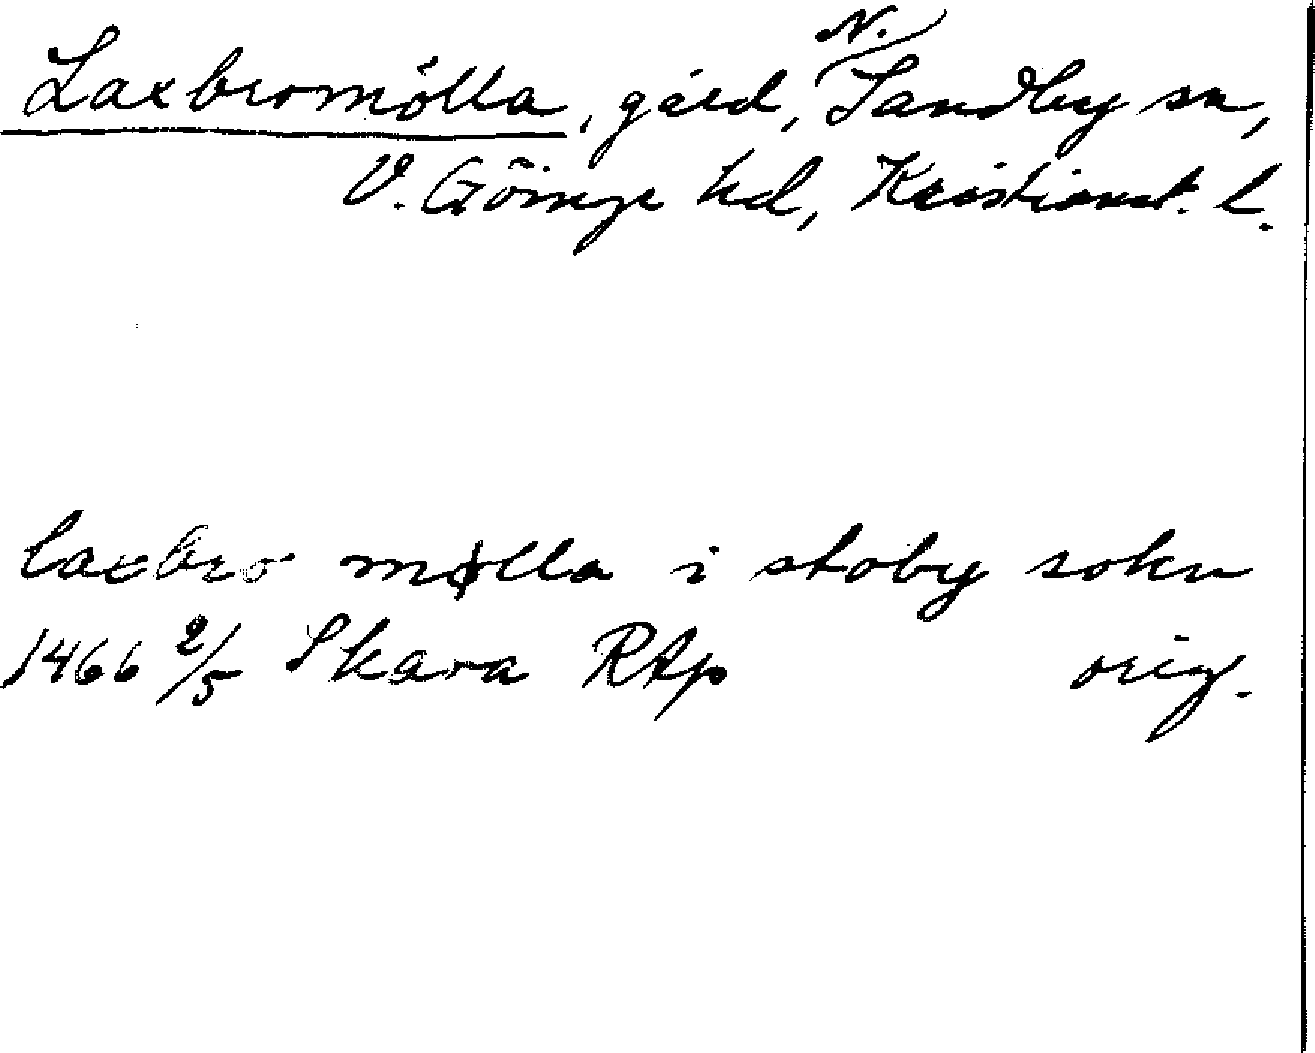 Laxbromölla, gård, N. Sandby sn,
V. Göinge hd, Kristianst. l.
laxbro mølla i stoby sokn
1466 2/5 Skara RAp orig.